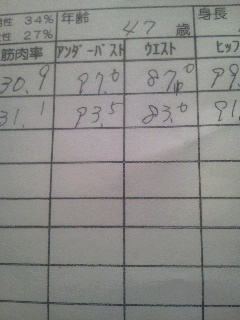 性 34% 年齢 47 歳 身長
性 27%
筋肉率 アンダーバスト ウエスト ヒップ
30.9 97.0 87.0 99.
31.1 93.5 83.0 91.